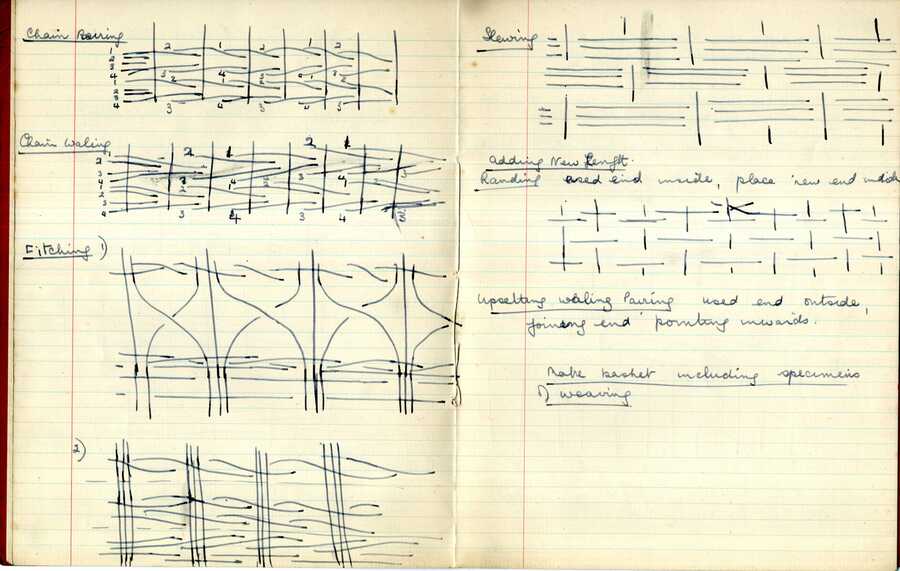 Chain Pairing
2 1 2 1 2
1
2
3
4
1
2
3
4
3 4 3 4 3
Chain Waling
2 1 2 1
2
3
4
1
2
3
4
3 4 3 4
Fitching 1)
2)
Slewing
Adding New Length.
Randing used end inside, place new end
Upsetting waling Pairing used end outside,
joining end pointing inwards.
Make basket including specimens
of weaving